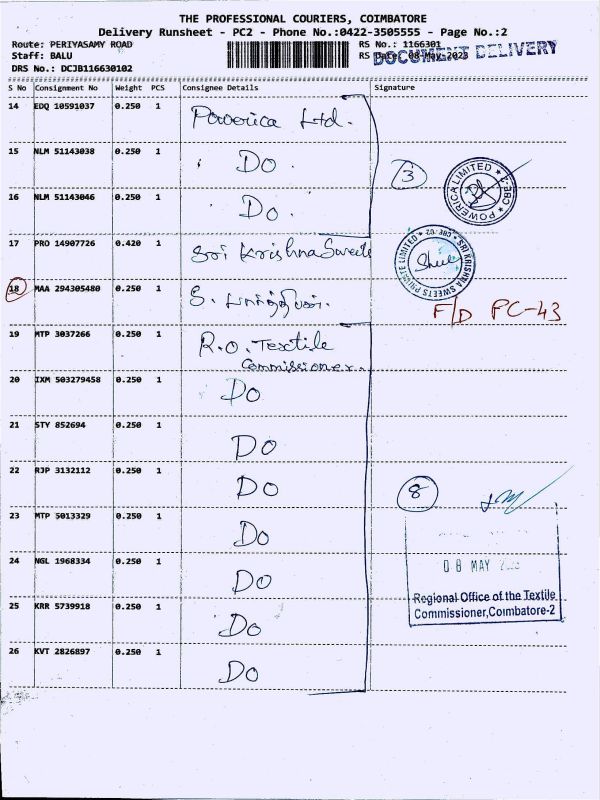 THE PROFESSIONAL COURIERS, COIMBATORE
Delivery Runsheet - PC2 - Phone No.:0422-3505555 - Page No.:2
Route: PERIYASAMY ROAD
RS No.: 1166301
Staff: BALU
RS Date: 08-May-2023
DOCUMENT DELIVERY
DRS No.: DCJB116630102
S No Consignment No Weight PCS Consignee Details Signature
14 EDQ 10591037 0.250 1 Powerica Ltd.
15 NLM 51143038 0.250 1 Do
16 NLM 51143046 0.250 1 Do
3
POWERICA LIMITED
17 PRO 14907726 0.420 1 Sri Krishna Sweets
SRI KRISHNA SWEETS PRIVATE LIMITED CBE-02
18 MAA 294305480 0.250 1
F/D PC-43
19 MTP 3037266 0.250 1 R.O. Textile
Commissioner.
20 IXM 503279458 0.250 1 Do
21 STY 852694 0.250 1 Do
22 RJP 3132112 0.250 1 Do
8
23 MTP 5013329 0.250 1 Do
24 NGL 1968334 0.250 1 Do
08 MAY
25 KRR 5739918 0.250 1 Do
Regional Office of the Textile
Commissioner,Coimbatore-2
26 KVT 2826897 0.250 1 Do